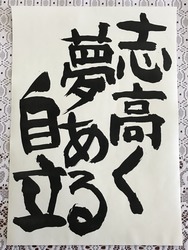 志高く
夢ある
自立